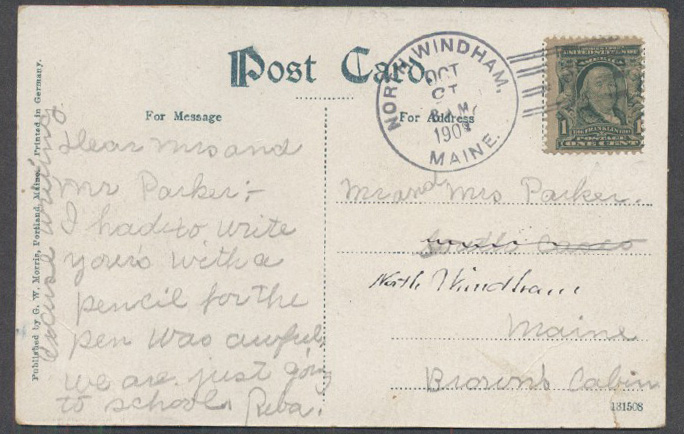 Post Card
For Message
For Address
Published by G. W. Morris, Portland, Maine. Printed in Germany.
excuse writing
Dear Mrs and
Mr Parker;-
I had to write
yours with a
pencil for the
pen was awful,
we are just going
to school. Reba.
NORTH WINDHAM,
OCT
MAINE.
AMERICA
FRANKLIN
1
POSTAGE
ONE CENT
Mr and Mrs Parker.
South Casco
North Windham
Maine
Browns Cabin
131508